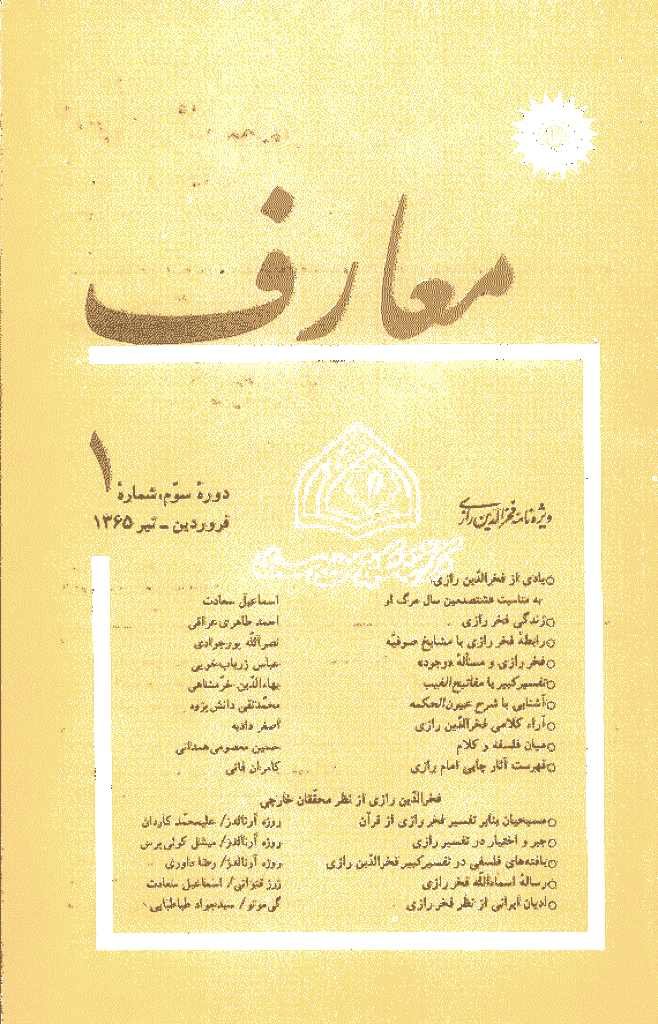 معارف
دورهٔ سوّم، شمارهٔ ۱
فروردین ـ تیر ۱۳۶۵
ویژه نامهٔ فخرالدّین رازی
○یادی از فخرالدّین رازی،
به مناسبت هشتصدمین سال مرگ او اسماعیل سعادت
○زندگی فخر رازی احمد طاهری عراقی
○رابطهٔ فخر رازی با مشایخ صوفیّه نصرالله پورجوادی
○فخر رازی و مسألهٔ «وجود» عباس زریاب خویی
○تفسیر کبیر یا مفاتیح‌الغیب بهاءالدّین خرّمشاهی
○آشنایی با شرح عیون‌الحکمه محمّدتقی دانش پژوه
○آراء کلامی فخرالدّین رازی اصغر دادبه
○میان فلسفه و کلام حسین معصومی همدانی
○فهرست آثار چاپی امام رازی کامران فانی
فخرالدّین رازی از نظر محقّقان خارجی
○مسیحیان بنابر تفسیر فخر رازی از قرآن روژه آرنالدز/ علیمحمّد کاردان
○جبر و اختیار در تفسیر رازی روژه آرنالدز/ میشل کوئی پرس
○یافته‌های فلسفی در تفسیر کبیر فخرالدّین رازی روژه آرنالدز/ رضا داوری
○رسالهٔ اسماءالله فخر رازی ژرژ قنواتی/ اسماعیل سعادت
○ادیان ایرانی از نظر فخر رازی گی مونو/ سیدجواد طباطبایی